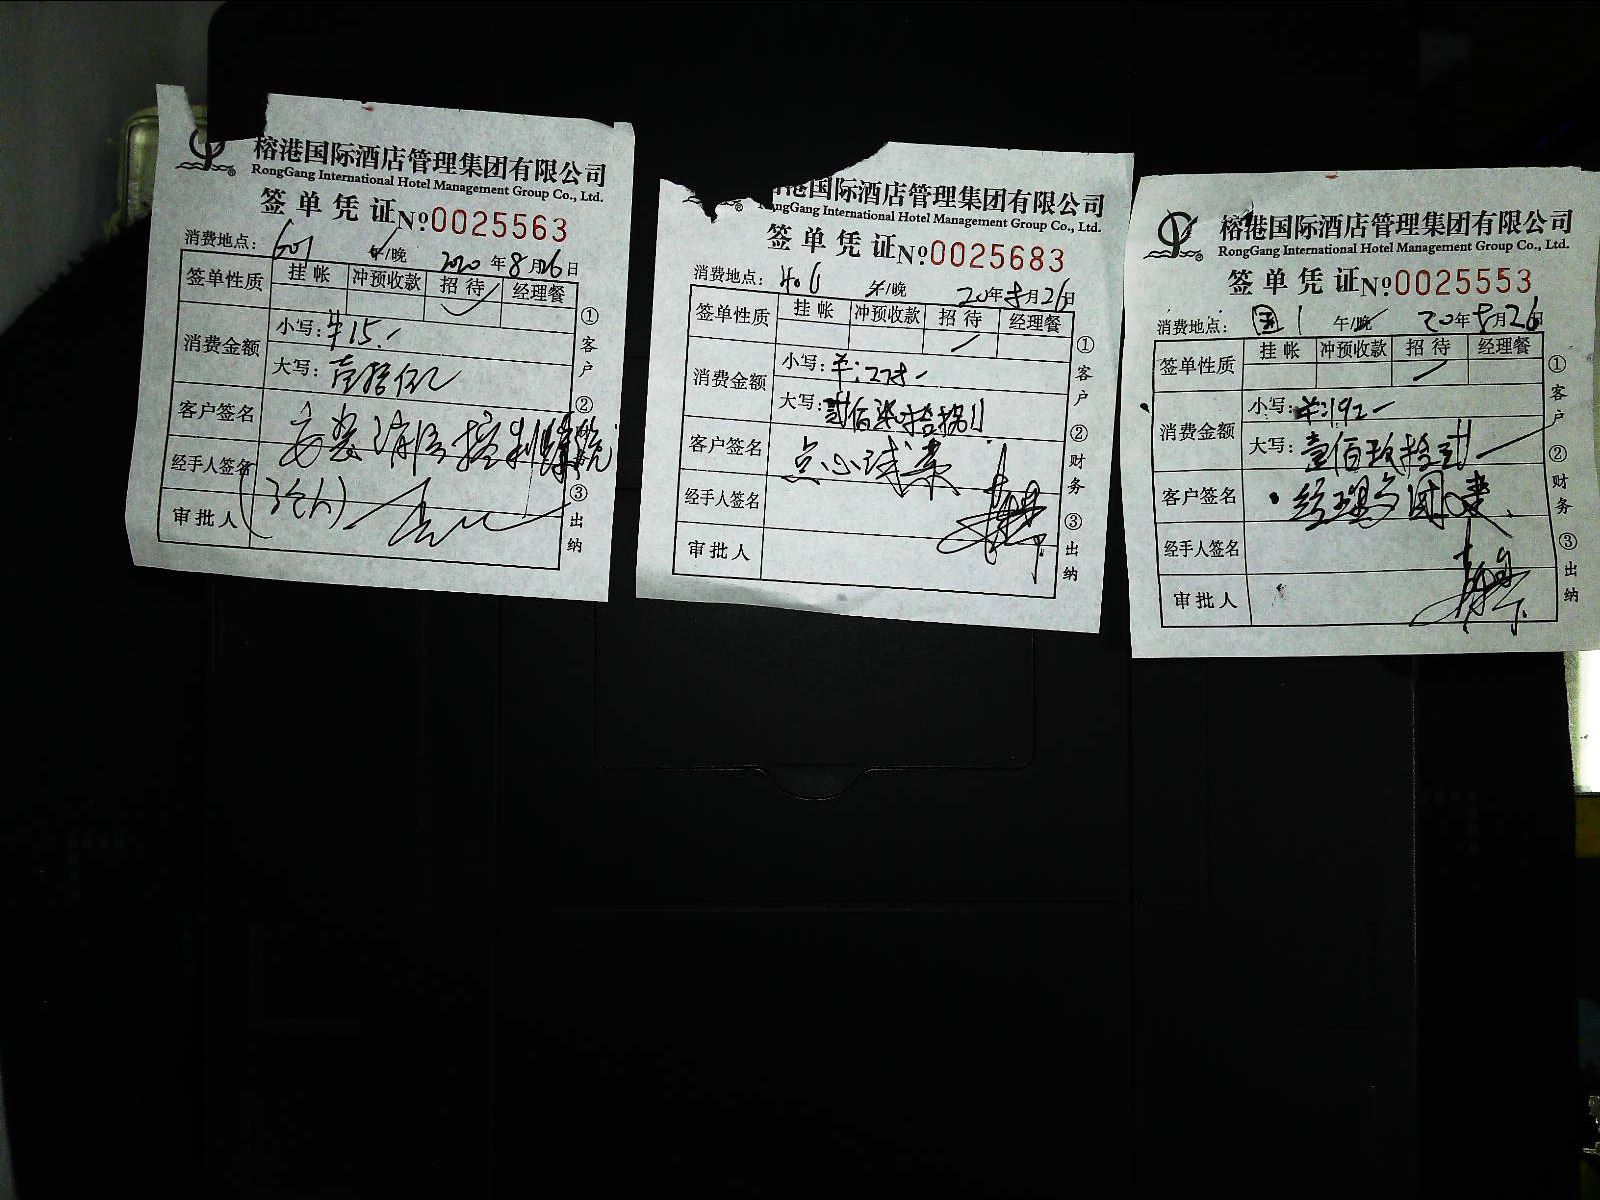 榕港国际酒店管理集团有限公司
RongGang International Hotel Management Group Co., Ltd.
签单凭证 №0025563
消费地点: 601 午/晚 2020年8月26日
签单性质 挂帐 冲预收款 招待 经理餐
消费金额 小写: ¥15.-
大写: 壹拾伍
客户签名
经手人签名
审批人
①客户
②财务
③出纳
港国际酒店管理集团有限公司
RongGang International Hotel Management Group Co., Ltd.
签单凭证 №0025683
消费地点: 午/晚 20年8月26日
签单性质 挂帐 冲预收款 招待 经理餐
消费金额 小写: ¥:278-
大写: 贰佰柒拾捌
客户签名 点心
经手人签名
审批人
①客户
②财务
③出纳
榕港国际酒店管理集团有限公司
RongGang International Hotel Management Group Co., Ltd.
签单凭证 №0025553
消费地点: 国1 午/晚 20年8月26日
签单性质 挂帐 冲预收款 招待 经理餐
消费金额 小写: ¥:192-
大写: 壹佰玖拾贰
客户签名 经理
经手人签名
审批人
①客户
②财务
③出纳